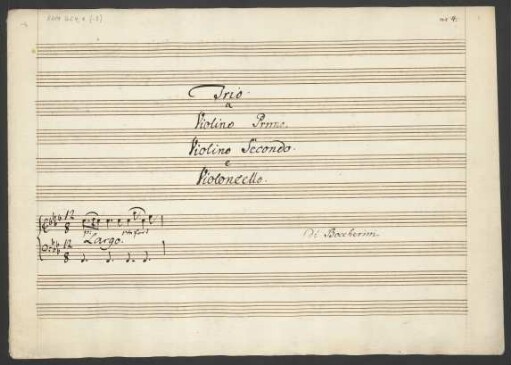 nr 4.
Trio
a
Violino Primo.
Violino Secondo.
e
Violoncello.
12
8
Largo.
12
8
Di Boccherini